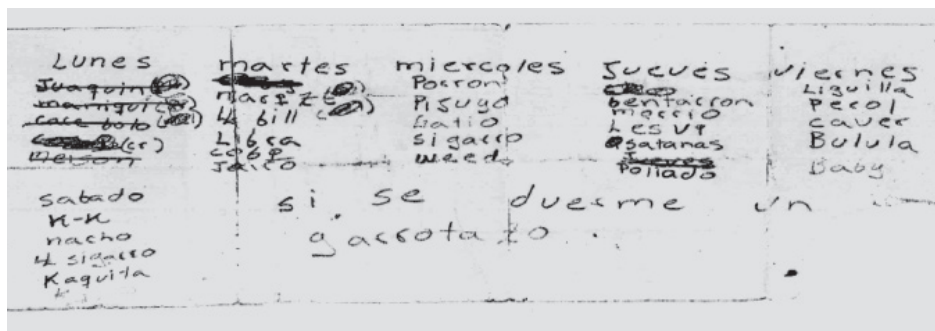 Lunes
Juaquin
maniqui
care bolo
(cr)
Nelson
martes
Narizt
4 bill
Libra
cobo
Jairo
miercoles
Porron
Pisuyo
Gatio
sigarro
weed
Jueves
bentarron
merrio
Lesvi
satanas
Jueves
Pollado
viernes
Liguilla
Pecol
caver
Bulula
Baby
sabado
K-K
nacho
4 sigarro
Kaquita
si se duerme un
garrotazo.